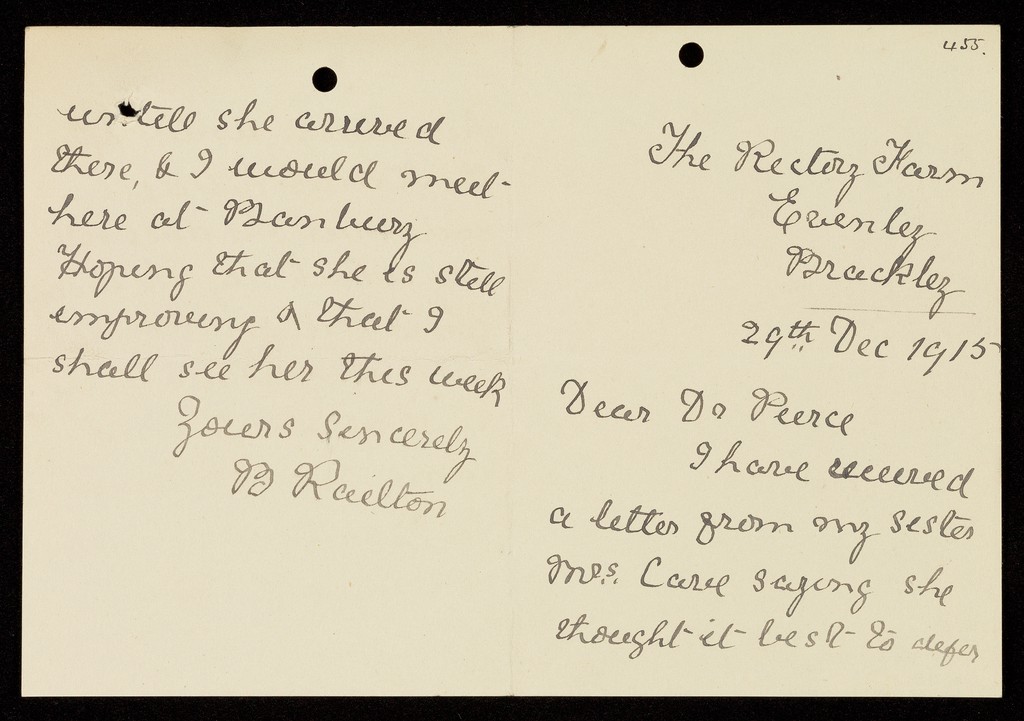 455.
The Rectory Farm
Evenley
Brackley
29th Dec 1915
Dear Dr Pierce
I have received
a letter from my sister
Mrs. Cave saying she
thought it best to defer
until she arrived
there, & I would meet
here at Banbury
Hoping that she is still
improving & that I
shall see her this week
Yours Sincerely
B Railton